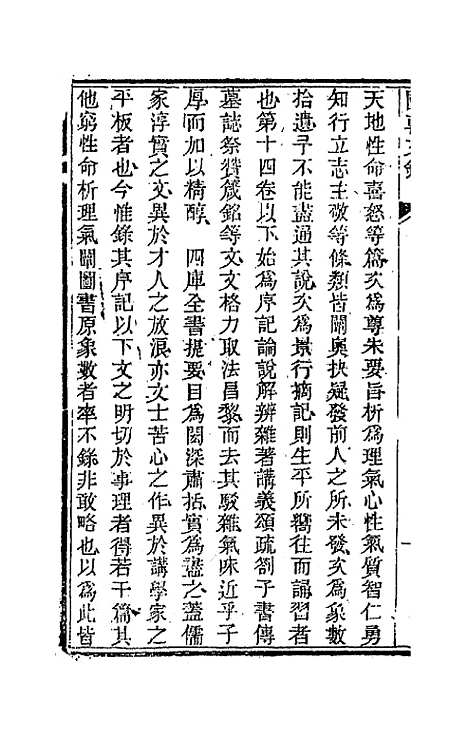 天地性命喜怒等篇次爲尊朱要旨析爲理氣心性氣質智仁勇
知行立志主敬等條類皆闡奧抉疑發前人之所未發次爲象數
拾遺予不能盡通其說次爲景行摘記則生平所嚮往而誦習者
也第十四卷以下始爲序記論說解辨雜著講義頌疏劄子書傳
墓誌祭贊箴銘等文文格力取法昌黎而去其駁雜氣味近乎子
厚而加以精醇　四庫全書提要目爲閎深肅括實爲盡之蓋儒
家淳實之文異於才人之放浪亦文士苦心之作異於講學家之
平板者也今惟錄其序記以下文之明切於事理者得若干篇其
他窮性命析理氣闡圖書原象數者率不錄非敢略也以爲此皆